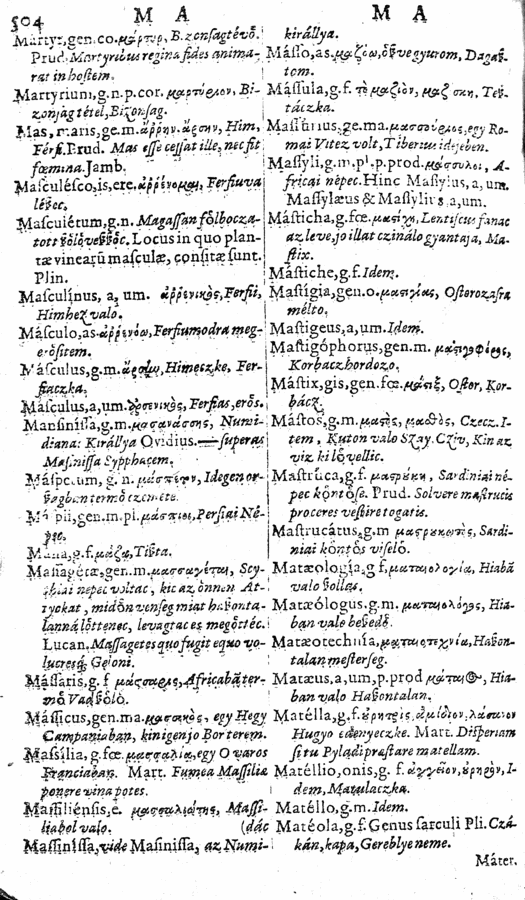 504
M A
M A
Martyr, gen. co. μάρτυρ, Bizonsagtévő.
Prud. Martyribus regina fides anima-
rat in hostem.
Martyrium, g. n. p. cor. μαρτύριον, Bi-
zonjag tétel, Bizonsag.
Mas, maris, ge. m. ἄῤῥην. ἄρσην, Him,
Férfi. Prud. Mas esse cessat ille, nec fit
fœmina. Jamb.
Masculésco, is, ere. ἀῤῥένομαι, Ferfiuva
lészec.
Masculétum, g. n. Magassan fölbocza-
tott
Locus in quo plan-
tæ vinearũ masculæ, consitæ sunt.
Plin.
Masculínus, a, um. ἀῤῥενικὸς, Ferfiui,
Himhez valo.
Másculo, as. ἀῤῥενόω, Ferfiumodra meg-
erősitem.
Másculus, g. m. Himeczke, Fer-
fiaczka.
Másculus, a, um. ἀρσενικὸς, Ferfias, erős.
Masiníssa, g. m. μασανάσσης, Numi-
diana: Királlya Ovidius. — superas
Masinissa Sypphacem.
Máspetum, g. n. μάσπετον, Idegen or-
szagban termő
Máspii, gen. m. pl. μάσπιοι, Persiai Né-
pec.
Massa, g. f. μάζα, Tiszta.
Massagétæ, gen. m. μασσαγέται, Scy-
thiai nepec voltac, kic az őnnen At-
tyokat, midőn vensegmiat haszonta-
lanná löttenec, levagtac es megöttéc.
Lucan. Massagetes quo fugit equo vo-
lucresq; Geloni.
Mássaris, g. f. μάσσαρις, Africabã ter-
mő Vadszőlő.
Mássicus, gen. ma. μασσικὸς, egy Hegy
Campaniaban, ki nigen jo Bor terem.
Massília, g. fœ. μασσαλία, egy O varos
Franciaban. Mart. Fumea Massiliæ
ponere vina potes.
Massiliénsis, e. μασσαλιώτης, Massi-
liabol valo. (dác
Massiníssa, vide Masinissa, az Numi-
királlya.
Másso, as. μαζάω, ővve gyurom, Dagasz-
tom.
Mássula, g. f. τὸ μαζίον, Tész-
táczka.
Massúrius, ge. ma. μασσούριος, egy Ro-
mai Vitez volt, Tiberius idejeben.
Massyli, g. m. pl. p. prod. μάσσυλοι, A-
fricai népec. Hinc Massylus, a, um,
Massylæus & Massylius, a, um.
Másticha, g. fœ. μαστίχη, Lentiscus fanac
az leve, jo illat czináló gyantaja, Ma-
stix.
Mástiche, g. f. Idem.
Mastígia, gen. o. μαστιγίας, Ostorozásra
mélto.
Mastigeus, a, um. Idem.
Mastigóphorus, gen. m. μαστιγοφόρος,
Korbacz hordozo.
Mástix, gis, gen. fœ. μάστιξ, Ostor, Kor-
bácz.
Mástos, g. m. μαστὸς, μασθὸς, Czecz. I-
tem, Kuton valo Szay. Cziv, Kin az
viz ki lövellic.
Mastrúca, g. f. μαστρύκη, Sardiniai né-
pec köntöse. Prud. Solvere mastrucis
proceres vestire togatis.
Mastrucátus, g. m. Sardi-
niai köntös viselő.
Matæología, g. f. ματαιολογία, Hiabã
valo szollas.
Matæólogus, g. m. ματαιολόγος, Hia-
ban valo beszedő.
Matæotechnía, ματαιοτεχνία, Haszon-
talan mesterseg.
Matæus, a, um, p. prod. μάταιος, Hia-
ban valo Haszontalan.
Matélla, g. f.
Hugyo edenyeczke. Mart. Disperiam
si tu Pyladi præstare matellam.
Matéllio, onis, g. f. ἀγγεῖον, οὐρηρὸν, I-
dem, Matulaczka.
Matéllo, g. m. Idem.
Matéola, g. f. Genus sarculi Pli. Czá-
kán, kapa, Gereblye neme.
Máter,